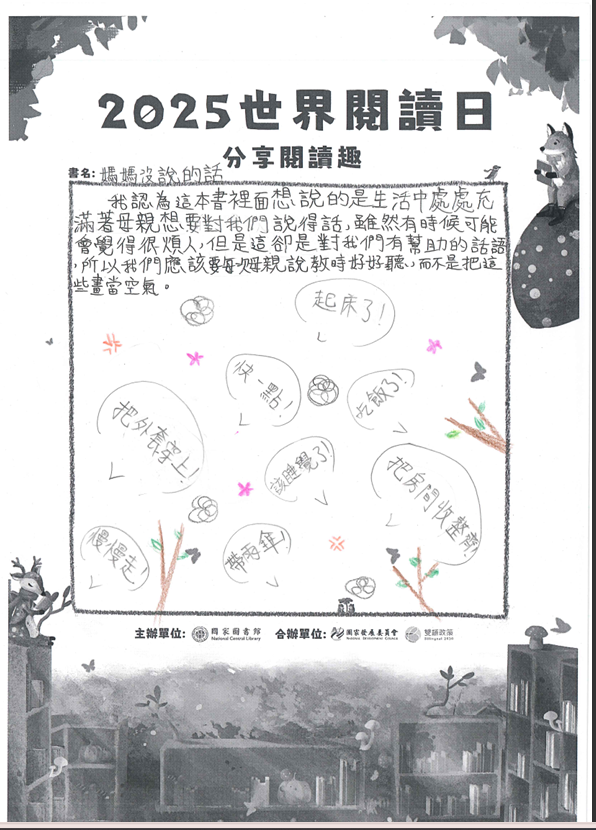 2025世界閱讀日
分享閱讀趣
書名: 媽媽沒說的話
我認為這本書裡面想說的是生活中處處充
滿著母親想要對我們說得話,雖然有時候可能
會覺得很煩人,但是這卻是對我們有幫助的話語
,所以我們應該要每母親說教時好好聽,而不是把這
些畫當空氣。
起床了!
快一點!
吃飯了!
把外套穿上!
該睡覺了!
把房間收整齊!
慢慢走!
帶雨傘!
主辦單位: 國家圖書館 National Central Library 合辦單位: 國家發展委員會 NATIONAL DEVELOPMENT COUNCIL 雙語政策 Bilingual 2030